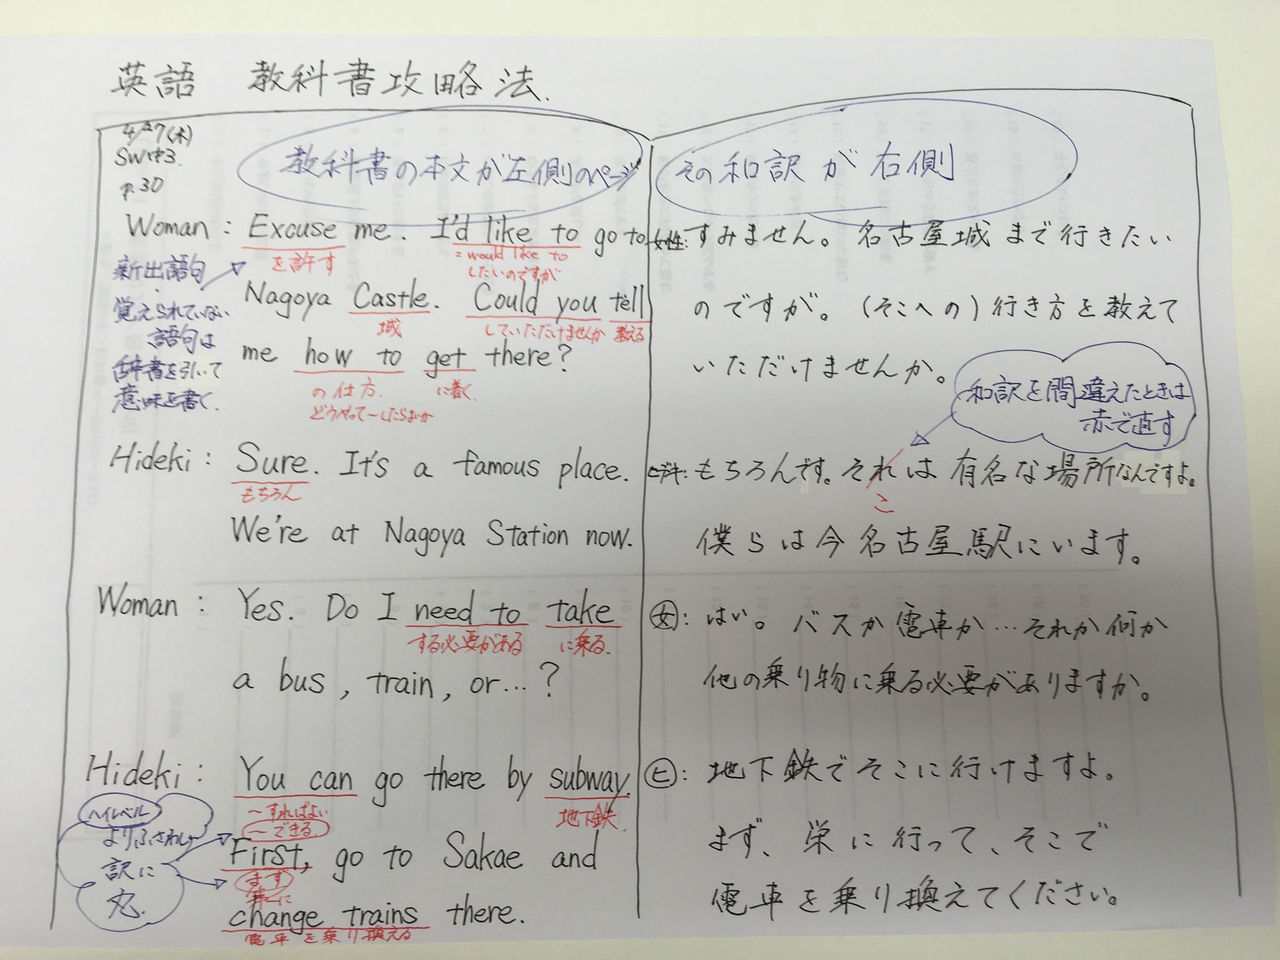 英語　教科書攻略法.
4/27(木)
SW中3.
p.30
教科書の本文が左側のページ
その和訳が右側
Woman : Excuse me. I'd like to go to
を許す
= would like to
したいのですが
新出語句
覚えられていない
語句は
辞書を引いて
意味を書く.
Nagoya Castle. Could you tell
城
していただけませんか
教える
me how to get there?
の仕方.
どうやって〜したらよいか
に着く
女性: すみません。名古屋城まで行きたい
のですが。(そこへの)行き方を教えて
いただけませんか。
和訳を間違えたときは
赤で直す
Hideki : Sure. It's a famous place.
もちろん
We're at Nagoya Station now.
ヒデキ: もちろんです。それは有名な場所なんですよ。
こ
僕らは今名古屋駅にいます。
Woman : Yes. Do I need to take
する必要がある
に乗る.
a bus, train, or...?
女: はい。バスか電車か…それか何か
他の乗り物に乗る必要がありますか。
Hideki : You can go there by subway.
〜すればよい
〜できる
地下鉄.
ハイレベル
よりふさわしい
訳に
丸.
First, go to Sakae and
まず
第一に
change trains there.
電車を乗り換える
ヒ: 地下鉄でそこに行けますよ。
まず、栄に行って、そこで
電車を乗り換えてください。